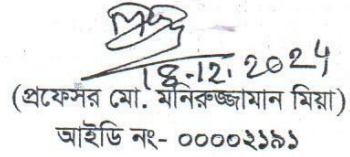 18.12.2024
(প্রফেসর মো. মনিরুজ্জামান মিয়া)
আইডি নং- ০০০০২১৯১